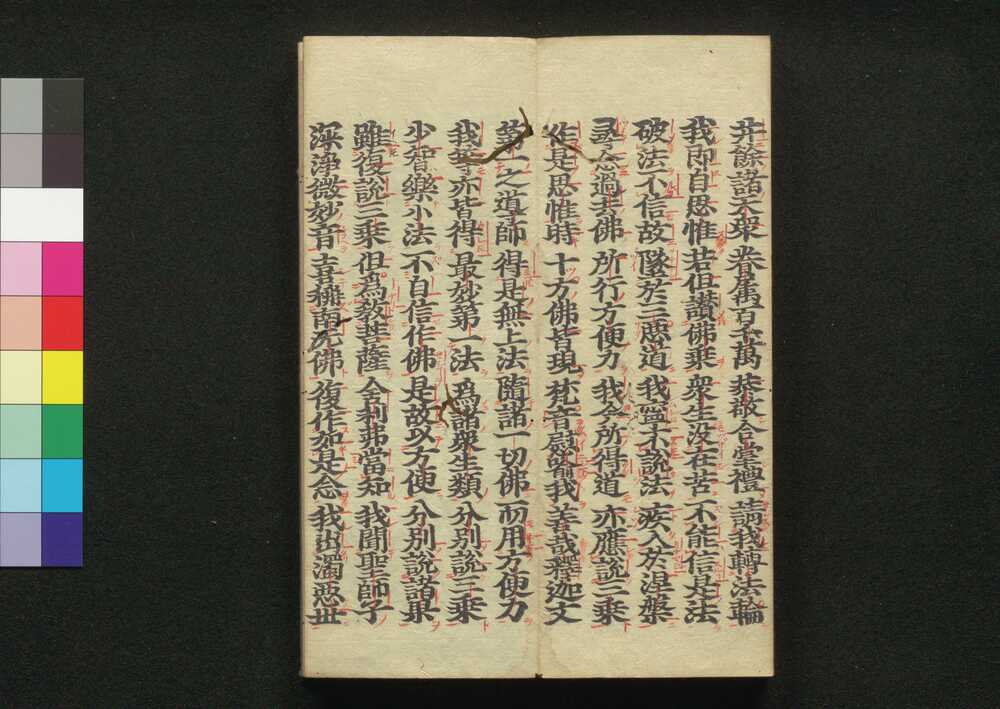 并餘諸天眾 眷屬百千萬 恭敬合掌禮 請我轉法輪
我即自思惟 若但讚佛乘 眾生没在苦 不能信是法
破法不信故 墜於三惡道 我寧不說法 疾入於涅槃
尋念過去佛 所行方便力 我今所得道 亦應說三乘
作是思惟時 十方佛皆現 梵音慰喻我 善哉釋迦文
第一之道師 得是無上法 隨諸一切佛 而用方便力
我等亦皆得 最妙第一法 為諸眾生類 分別說三乘
少智樂小法 不自信作佛 是故以方便 分別說諸果
雖復說三乘 但為教菩薩 舍利弗當知 我聞聖師子
深淨微妙音 喜稱南无佛 復作如是念 我出濁惡世